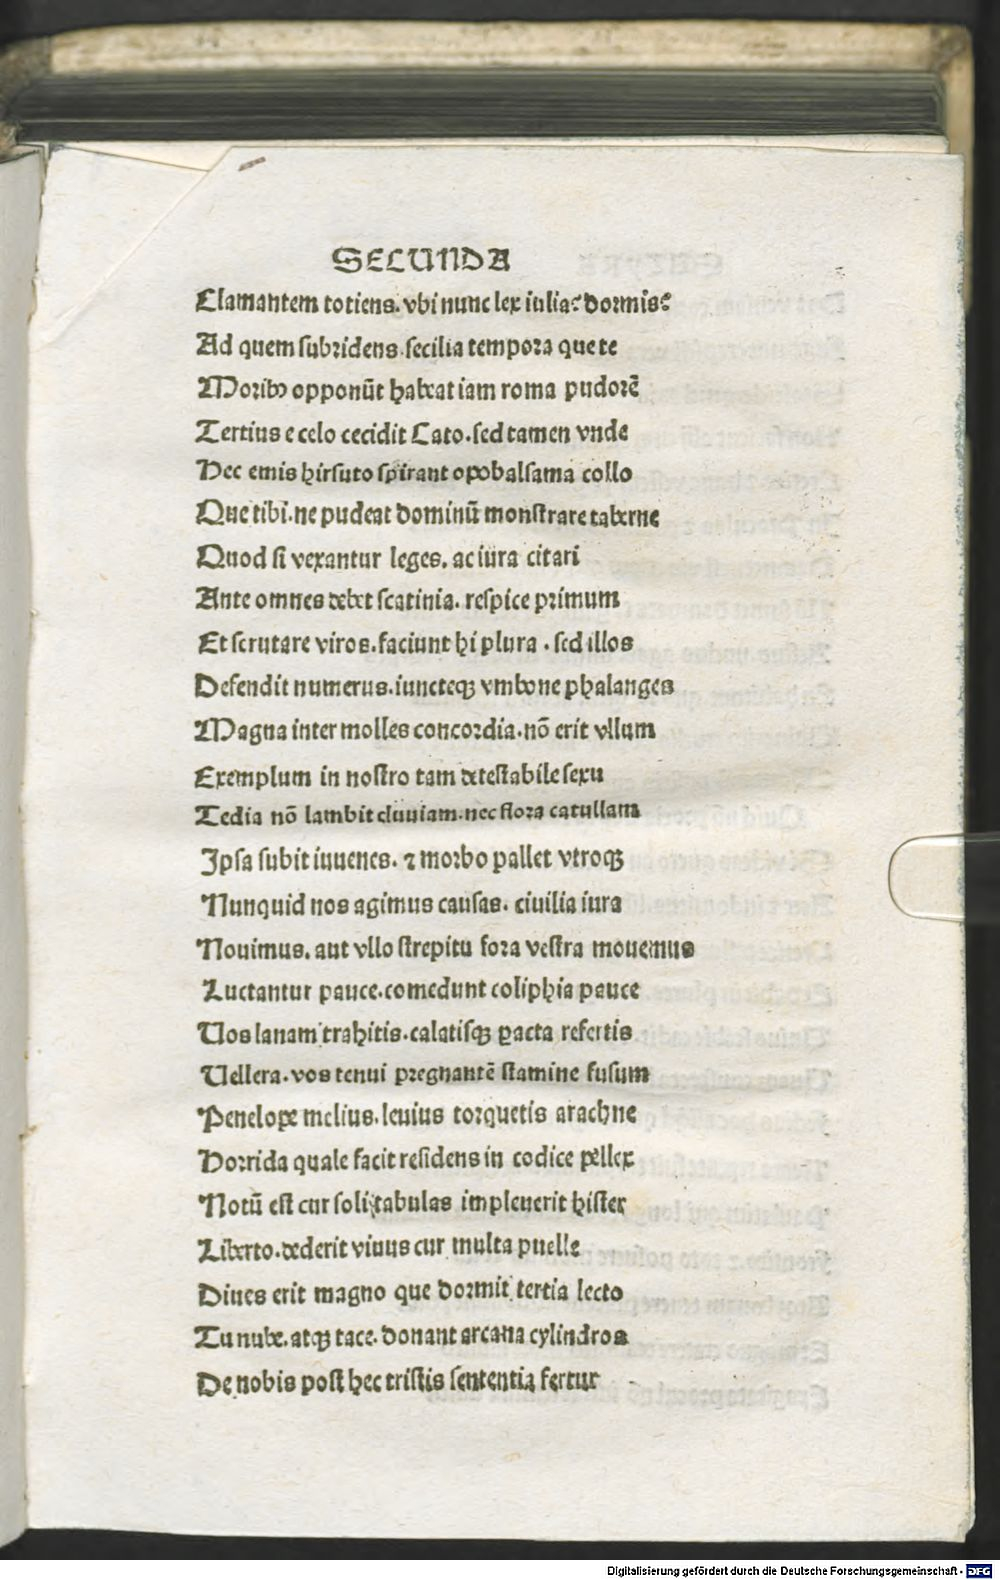 SECUNDA
Clamantem totiens. vbi nunc lex iulia? dormis?
Ad quem subridens. fecilia tempora que te
Moribꝰ opponūt habeat iam roma pudorē
Tertius e celo cecidit Cato. sed tamen vnde
Hec emis hirsuto spirant opobalsama collo
Que tibi. ne pudeat dominū monstrare taberne
Quod si vexantur leges. ac iura citari
Ante omnes debet scatinia. respice primum
Et scrutare viros. faciunt hi plura . sed illos
Defendit numerus. iuncteqꝫ vmbone phalanges
Magna inter molles concordia. nō erit vllum
Exemplum in nostro tam detestabile sexu
Tedia nō lambit cluuiam. nec flora catullam
Ipsa subit iuuenes. ⁊ morbo pallet vtroqꝫ
Nunquid nos agimus causas. ciuilia iura
Nouimus. aut vllo strepitu fora vestra mouemus
Luctantur pauce. comedunt coliphia pauce
Uos lanam trahitis. calatisqꝫ ꝑacta refertis
Uellera. vos tenui pregnantē stamine fusum
Penelope melius. leuius torquetis arachne
Horrida quale facit residens in codice pellex
Notū est cur soli tabulas impleuerit hister
Liberto. dederit viuus cur multa puelle
Diues erit magno que dormit tertia lecto
Tu nube. atqꝫ tace. donant arcana cylindros
De nobis post hec tristis sententia fertur
Digitalisierung gefördert durch die Deutsche Forschungsgemeinschaft - DFG